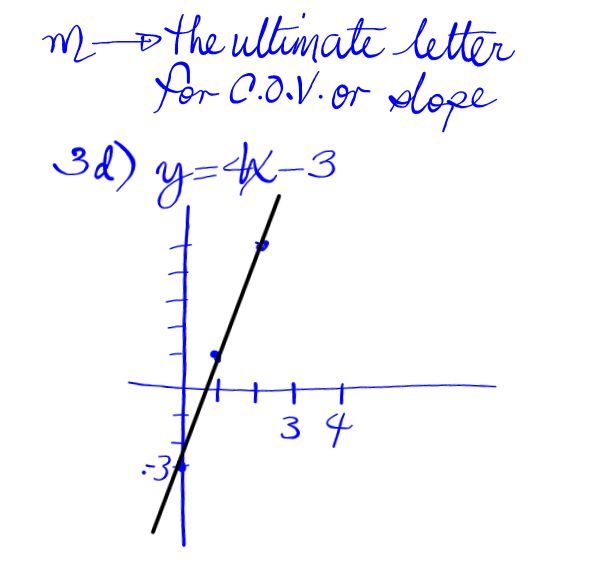 m→the ultimate letter
for C.O.V. or slope
3d) y=4x-3
3 4
-3